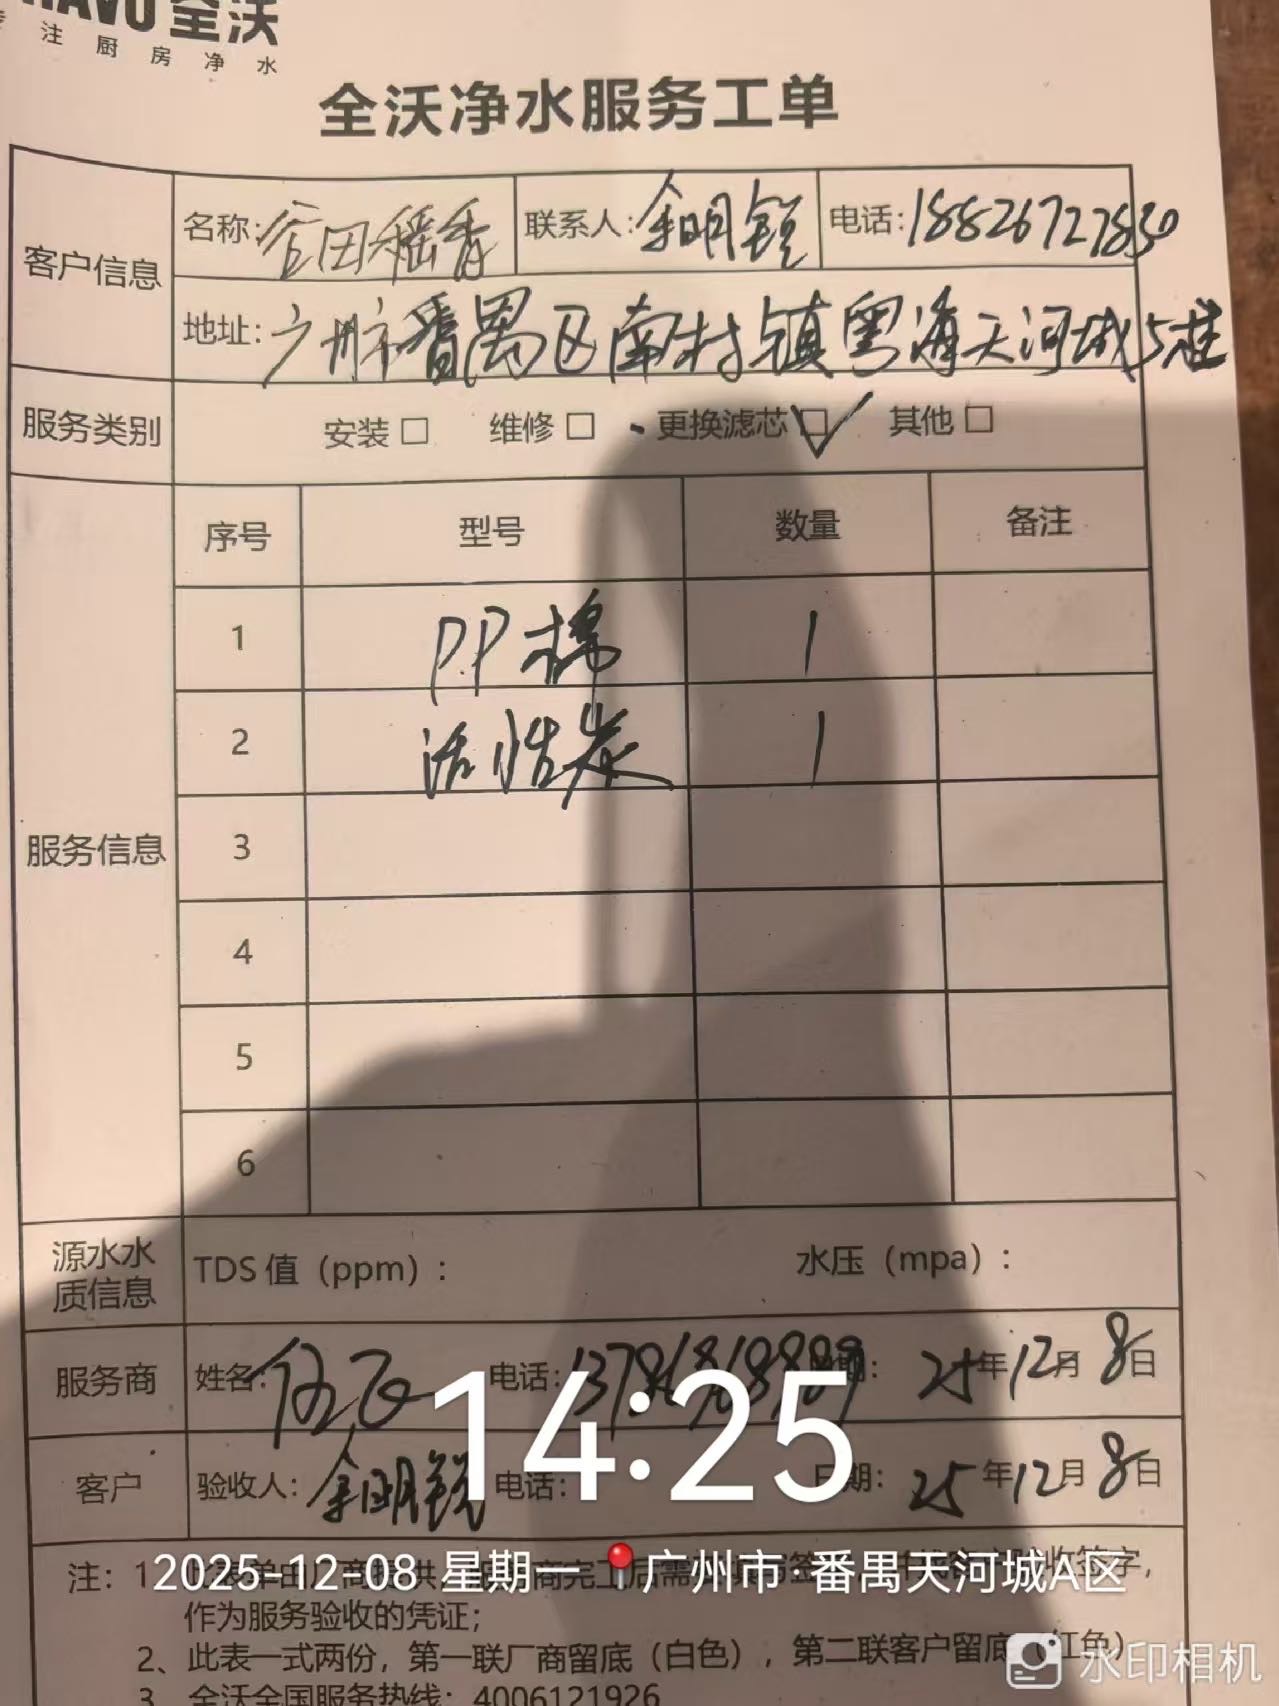 全沃
注厨房净水
全沃净水服务工单
客户信息 名称:谷田稻香 联系人:余明锐 电话:18826727830
地址:广州市番禺区南村镇粤海天河城5楼
服务类别 安装□ 维修□ 更换滤芯□✓ 其他□
服务信息 序号 型号 数量 备注
1 PP棉 1
2 活性炭 1
3
4
5
6
源水水质信息 TDS值（ppm）: 水压（mpa）:
服务商 姓名: 电话: 25年12月8日
客户 验收人:余明锐 电话: 日期: 25年12月8日
14:25
2025-12-08 星期一 广州市·番禺天河城A区
注: 1
作为服务验收的凭证；
2、此表一式两份，第一联厂商留底（白色），第二联客户留底（红色）
3、全沃全国服务热线：4006121926
水印相机